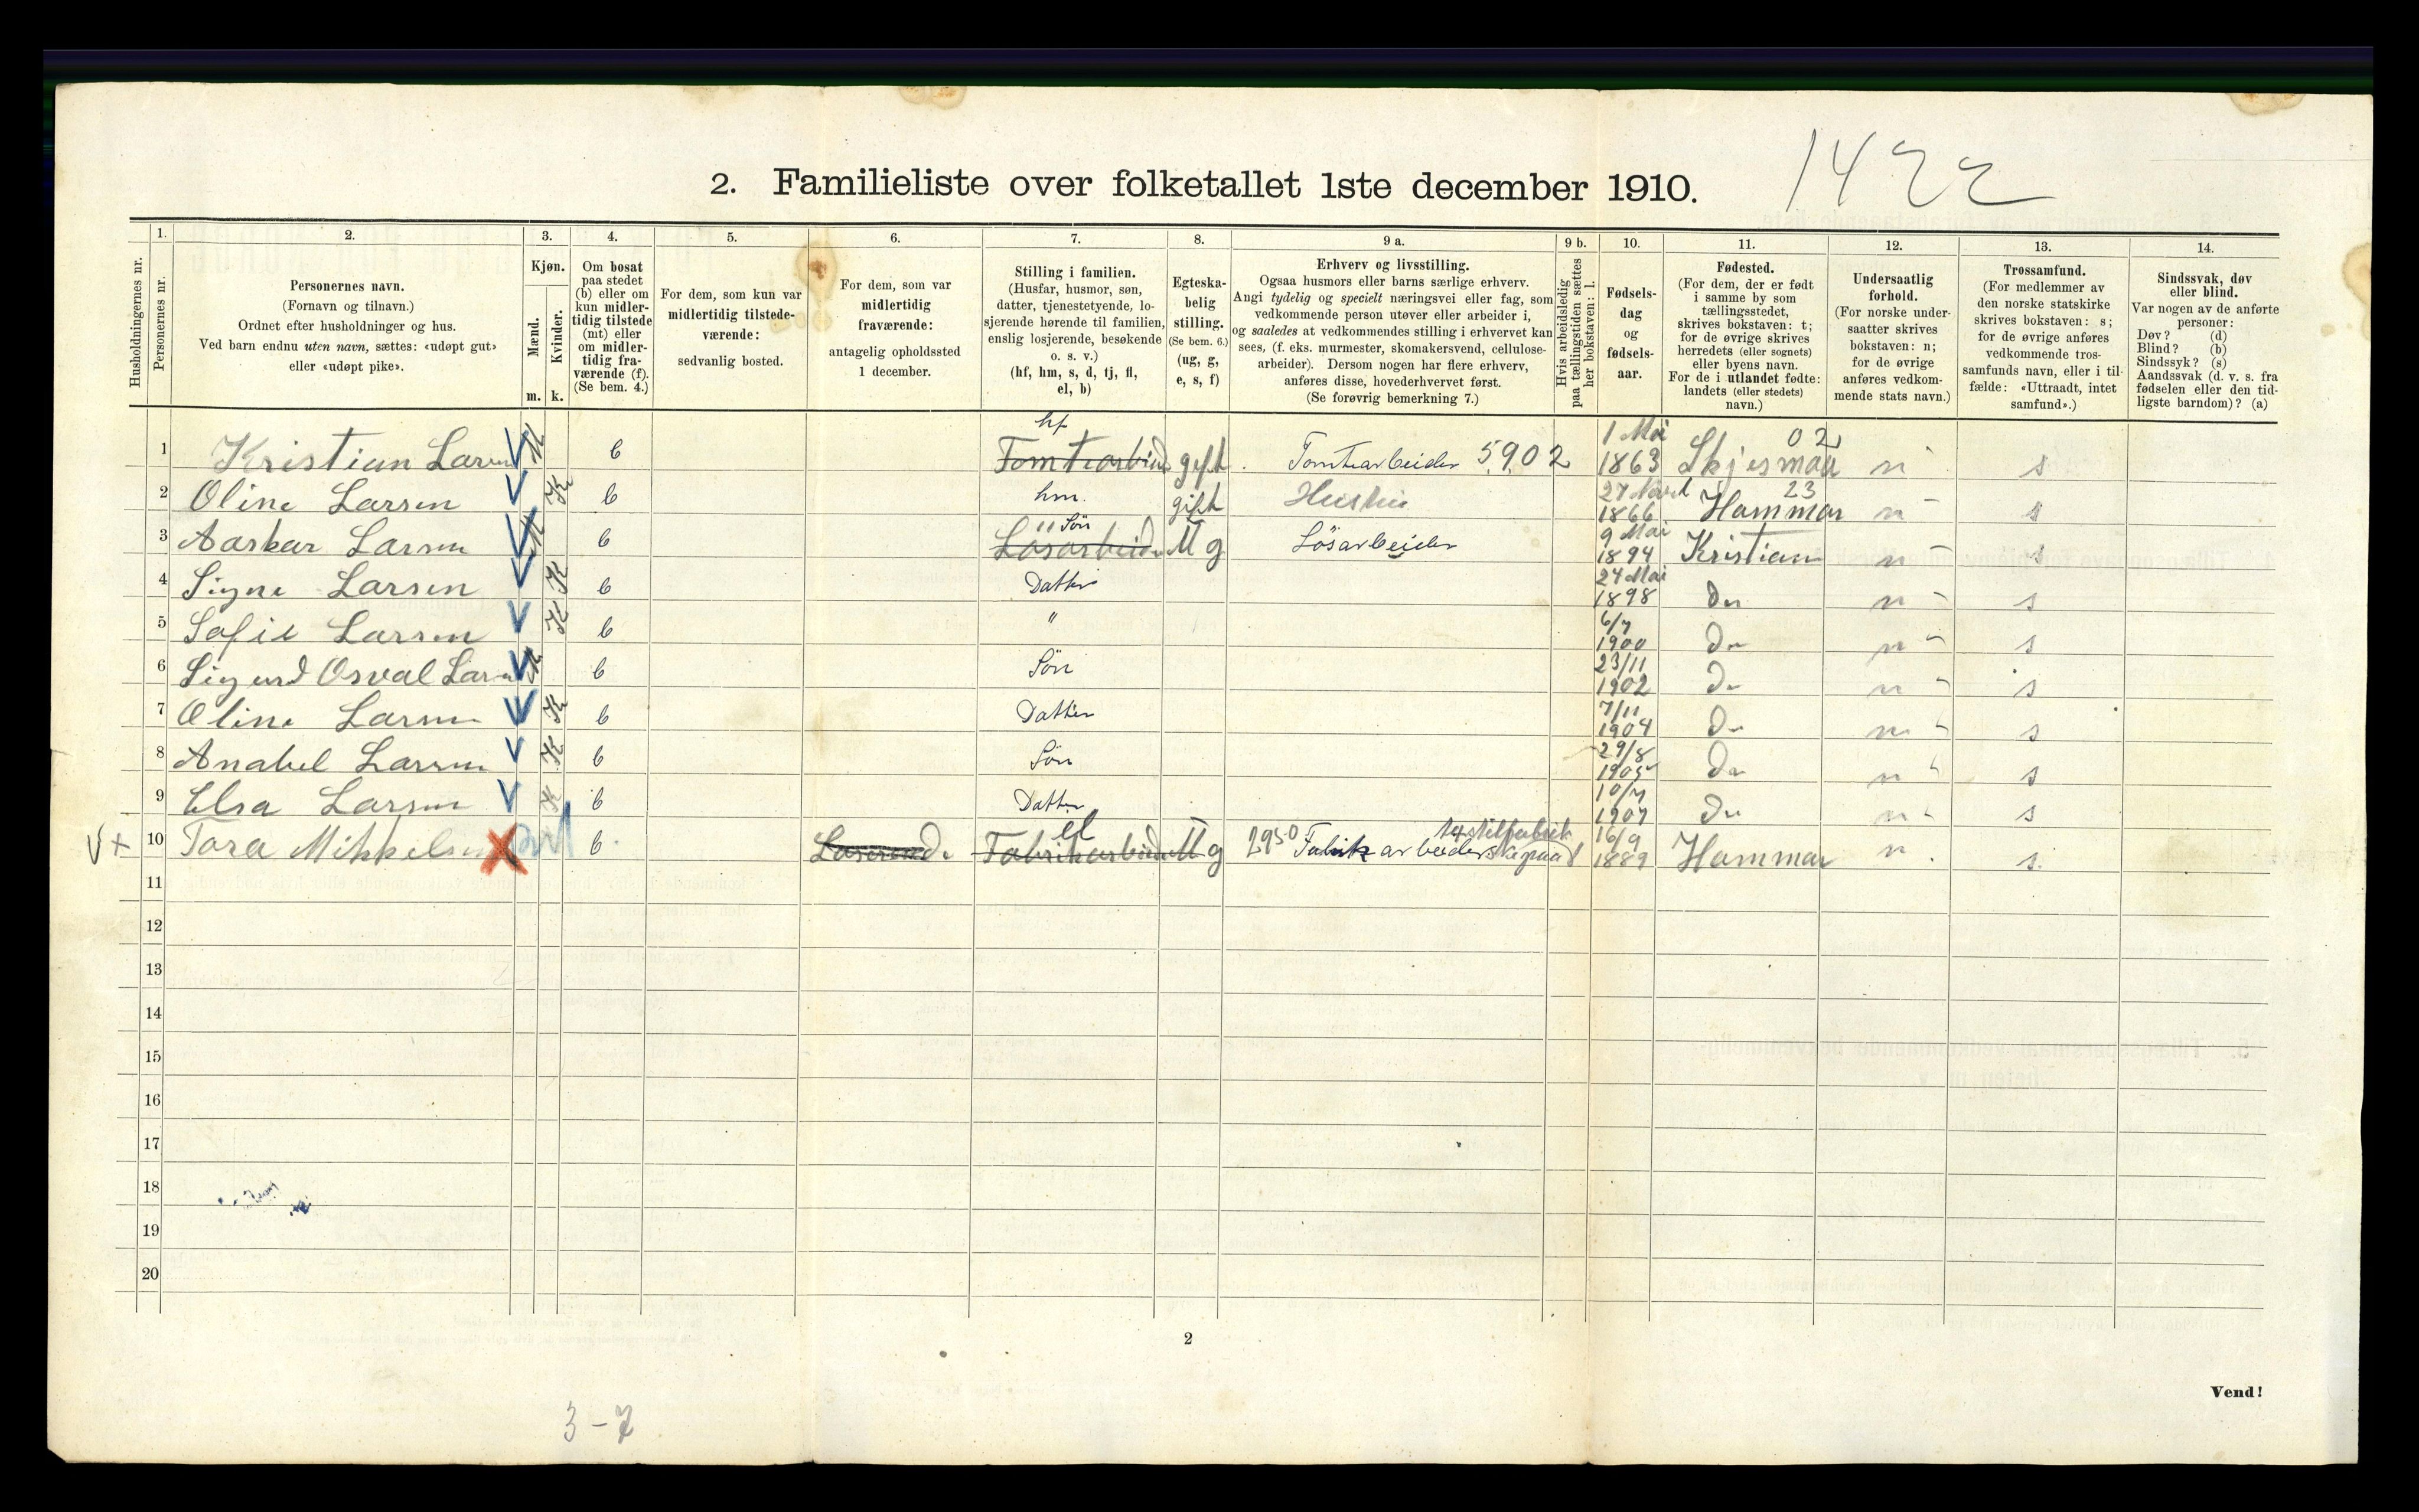 1422
2. Familieliste over folketallet 1ste december 1910.
Husholdningernes nr.
1.
Personernes nr.
2.
Personernes navn.
(Fornavn og tilnavn.)
Ordnet efter husholdninger og hus.
Ved barn endnu uten navn, sættes: «udøpt gut»
eller «udøpt pike».
3.
Kjøn.
Mænd.
Kvinder.
m. k.
4.
Om bosat
paa stedet
(b) eller om
kun midler-
tidig tilstede
(mt) eller
om midler-
tidig fra-
værende (f).
(Se bem. 4.)
5.
For dem, som kun var
midlertidig tilstede-
værende:
sedvanlig bosted.
6.
For dem, som var
midlertidig
fraværende:
antagelig opholdssted
1 december.
7.
Stilling i familien.
(Husfar, husmor, søn,
datter, tjenestetyende, lo-
sjerende hørende til familien,
enslig losjerende, besøkende
o. s. v.)
(hf, hm, s, d, tj, fl,
el, b)
8.
Egteska-
belig
stilling.
(Se bem. 6.)
(ug, g,
e, s, f)
9 a.
Erhverv og livsstilling.
Ogsaa husmors eller barns særlige erhverv.
Angi tydelig og specielt næringsvei eller fag, som
vedkommende person utøver eller arbeider i,
og saaledes at vedkommendes stilling i erhvervet kan
sees, (f. eks. murmester, skomakersvend, cellulose-
arbeider). Dersom nogen har flere erhverv,
anføres disse, hovederhvervet først.
(Se forøvrig bemerkning 7.)
9 b.
Hvis arbeidsledig
paa tællingstiden sættes
her bokstaven: l.
10.
Fødsels-
dag
og
fødsels-
aar.
11.
Fødested.
(For dem, der er født
i samme by som
tællingsstedet,
skrives bokstaven: t;
for de øvrige skrives
herredets (eller sognets)
eller byens navn.
For de i utlandet fødte:
landets (eller stedets)
navn.)
12.
Undersaatlig
forhold.
(For norske under-
saatter skrives
bokstaven: n;
for de øvrige
anføres vedkom-
mende stats navn.)
13.
Trossamfund.
(For medlemmer av
den norske statskirke
skrives bokstaven: s;
for de øvrige anføres
vedkommende tros-
samfunds navn, eller i til-
fælde: «Uttraadt, intet
samfund».)
14.
Sindssvak, døv
eller blind.
Var nogen av de anførte
personer:
Døv? (d)
Blind? (b)
Sindssyk? (s)
Aandssvak (d. v. s. fra
fødselen eller den tid-
ligste barndom)? (a)
1 Kristian Larsen M b hf Tomtearbeid gift Tomtearbeider 5902 1 Mai 1863 02 n s
2 Oline Larsen K b hm. gift 1866 23 Hammar n s
3 Aaskar Larsen M b Søn Lösarbeider M g Lösarbeider 9 Mai 1894 Kristian n s
4 Signe Larsen K b Datter 24 Mai 1898 Do n s
5 Sofie Larsen K b " 6/7 1900 Do n s
6 Sigurd Osval Larsen M b Søn 23/11 1902 Do n s
7 Oline Larsen K b Datter 7/11 1904 Do n s
8 Anabel Larsen K b Søn 29/8 1905 Do n s
9 Elsa Larsen K b Datter 10/7 1907 Do n s
V + 10 Tora Mikkelsen b Loserende el Fabrikarbeider M g 2950 Fabrik arbeiderske 16/9 1889 Hammar n s.
11
12
13
14
15
16
17
18
19
20
2
Vend!
3-7